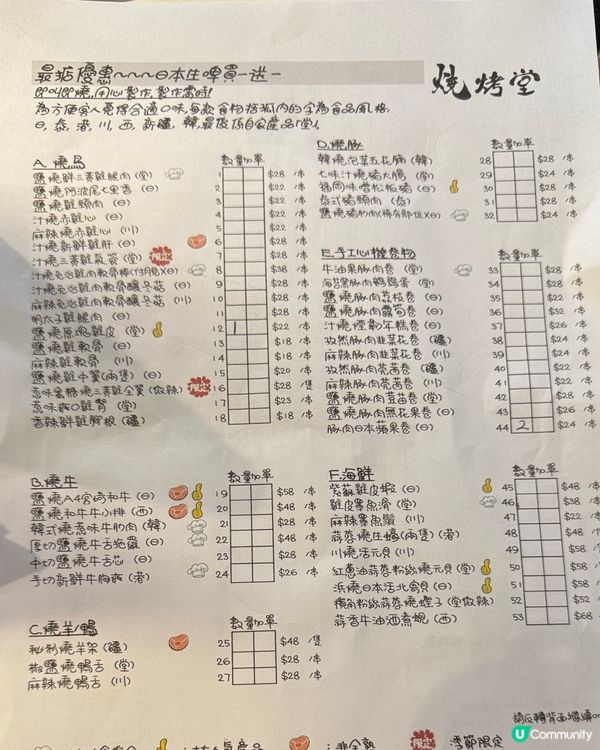 最抵優惠~~~日本生啤買一送一
燒烤堂
為方便客人覓得合適口味,每款食物括弧内的字為食品風格,
A. 燒鳥
數量加單
鹽燒鮮三黃雞腿肉 (堂) 1 $28 /串
鹽燒阿波尾七里香 (日) 2 $22 /串
鹽燒雞頸肉 (日) 3 $22 /串
汁燒赤雞心 (日) 4 $22 /串
麻辣燒赤雞心 (川) 5 $22 /串
汁燒新鮮雞肝 (日) 6 $28 /串
汁燒三黃雞 (堂) 7 $28 /串
8 $38 /串
9 $28 /串
10 $28 /串
明太子雞腿肉 (日) 11 $28 /串
鹽燒原塊雞皮 (堂) 12 1 $22 /串
鹽燒雞軟骨 (日) 13 $18 /串
麻辣雞軟骨 (川) 14 $18 /串
鹽燒雞中翼(兩隻) (日) 15 $20 /串
惹味蜜糖燒三黃雞全翼 (微辣) 限定 16 $28 /隻
17 $23 /串
香辣鮮雞腳板 (疆) 18 $18 /串
B. 燒牛
數量加單
鹽燒A4宮崎和牛 (日) 19 $58 /串
鹽燒和牛牛小排 (西) 20 $48 /串
韓式燒惹味牛肋肉 (韓) 21 $28 /串
厚切鹽燒牛舌 (日) 22 $48 /串
中切鹽燒牛舌芯 (日) 23 $28 /串
手切新鮮牛胸爽 (港) 24 $26 /串
C. 燒羊/鴨
數量加單
秘制燒羊架 (疆) 25 $48 /隻
椒鹽燒鴨舌 (堂) 26 $28 /串
麻辣燒鴨舌 (川) 27 $28 /串
D. 燒豚
數量加單
韓燒泡菜五花腩 (韓) 28 $28 /串
七味汁燒豬大腸 (堂) 29 $24 /串
福岡味噌松板豬 (日) 30 $28 /串
泰式豬頸肉 (泰) 31 $28 /串
鹽燒豬肋肉(稀有部位)(日) 32 $24 /串
E. 手工心機卷物
數量加單
牛油果豚肉卷 (堂) 33 $28 /串
海苔豚肉鵪鶉蛋 (堂) 34 $28 /串
鹽燒豚肉荔枝卷 (日) 35 $28 /串
鹽燒豚肉露筍卷 (日) 36 $32 /串
汁燒煙鴨年糕卷 (日) 37 $26 /串
孜然豚肉韭菜花卷 (疆) 38 $24 /串
麻辣豚肉韭菜花卷 (川) 39 $24 /串
孜然豚肉茼蒿卷 (疆) 40 $22 /串
麻辣豚肉茼蒿卷 (川) 41 $22 /串
鹽燒豚肉茼蒿卷 (堂) 42 $28 /串
鹽燒豚肉無花果卷 (日) 43 $26 /串
豚肉日本蘋果卷 (日) 44 2 $24 /串
F. 海鮮
數量加單
紫蘇雞皮蝦 (日) 45 $48 /串
雞皮墨魚滑 (堂) 46 $38 /串
麻辣墨魚鬚 (川) 47 $22 /串
蒜蓉燒生蠔(兩隻) (港) 48 $48 /
川燒活元貝 (川) 49 $58 /
紅蔥油蒜蓉粉絲燒元貝 (堂) 50 $58 /
浜燒日本活北寄貝 (日) 51 $58 /
檳粉絲蒜蓉燒蟶子 (堂微辣) 52 $52 /
蒜香牛油酒煮蜆 (西) 53 $68
請反轉背面繼續
:非全熟
限定 :季節限定
U Community